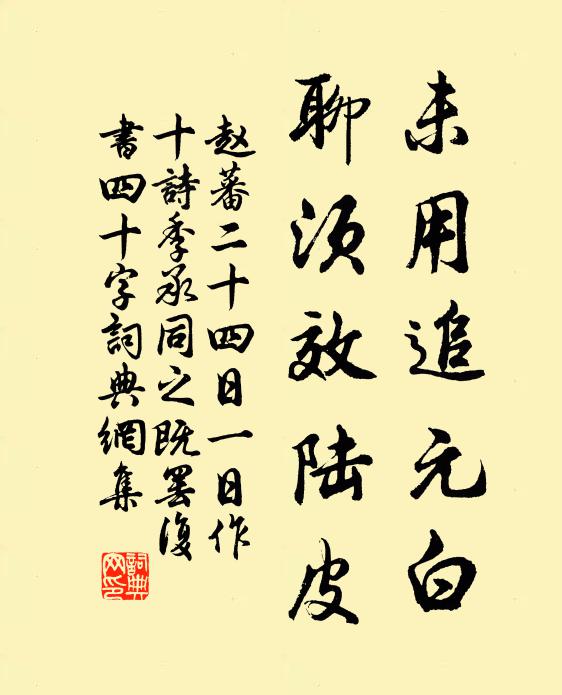 未用追元白
聊须效陆皮
赵蕃二十四日一日作
十詩季承同之既罢復
書四十字詞典網集
詞典
网印